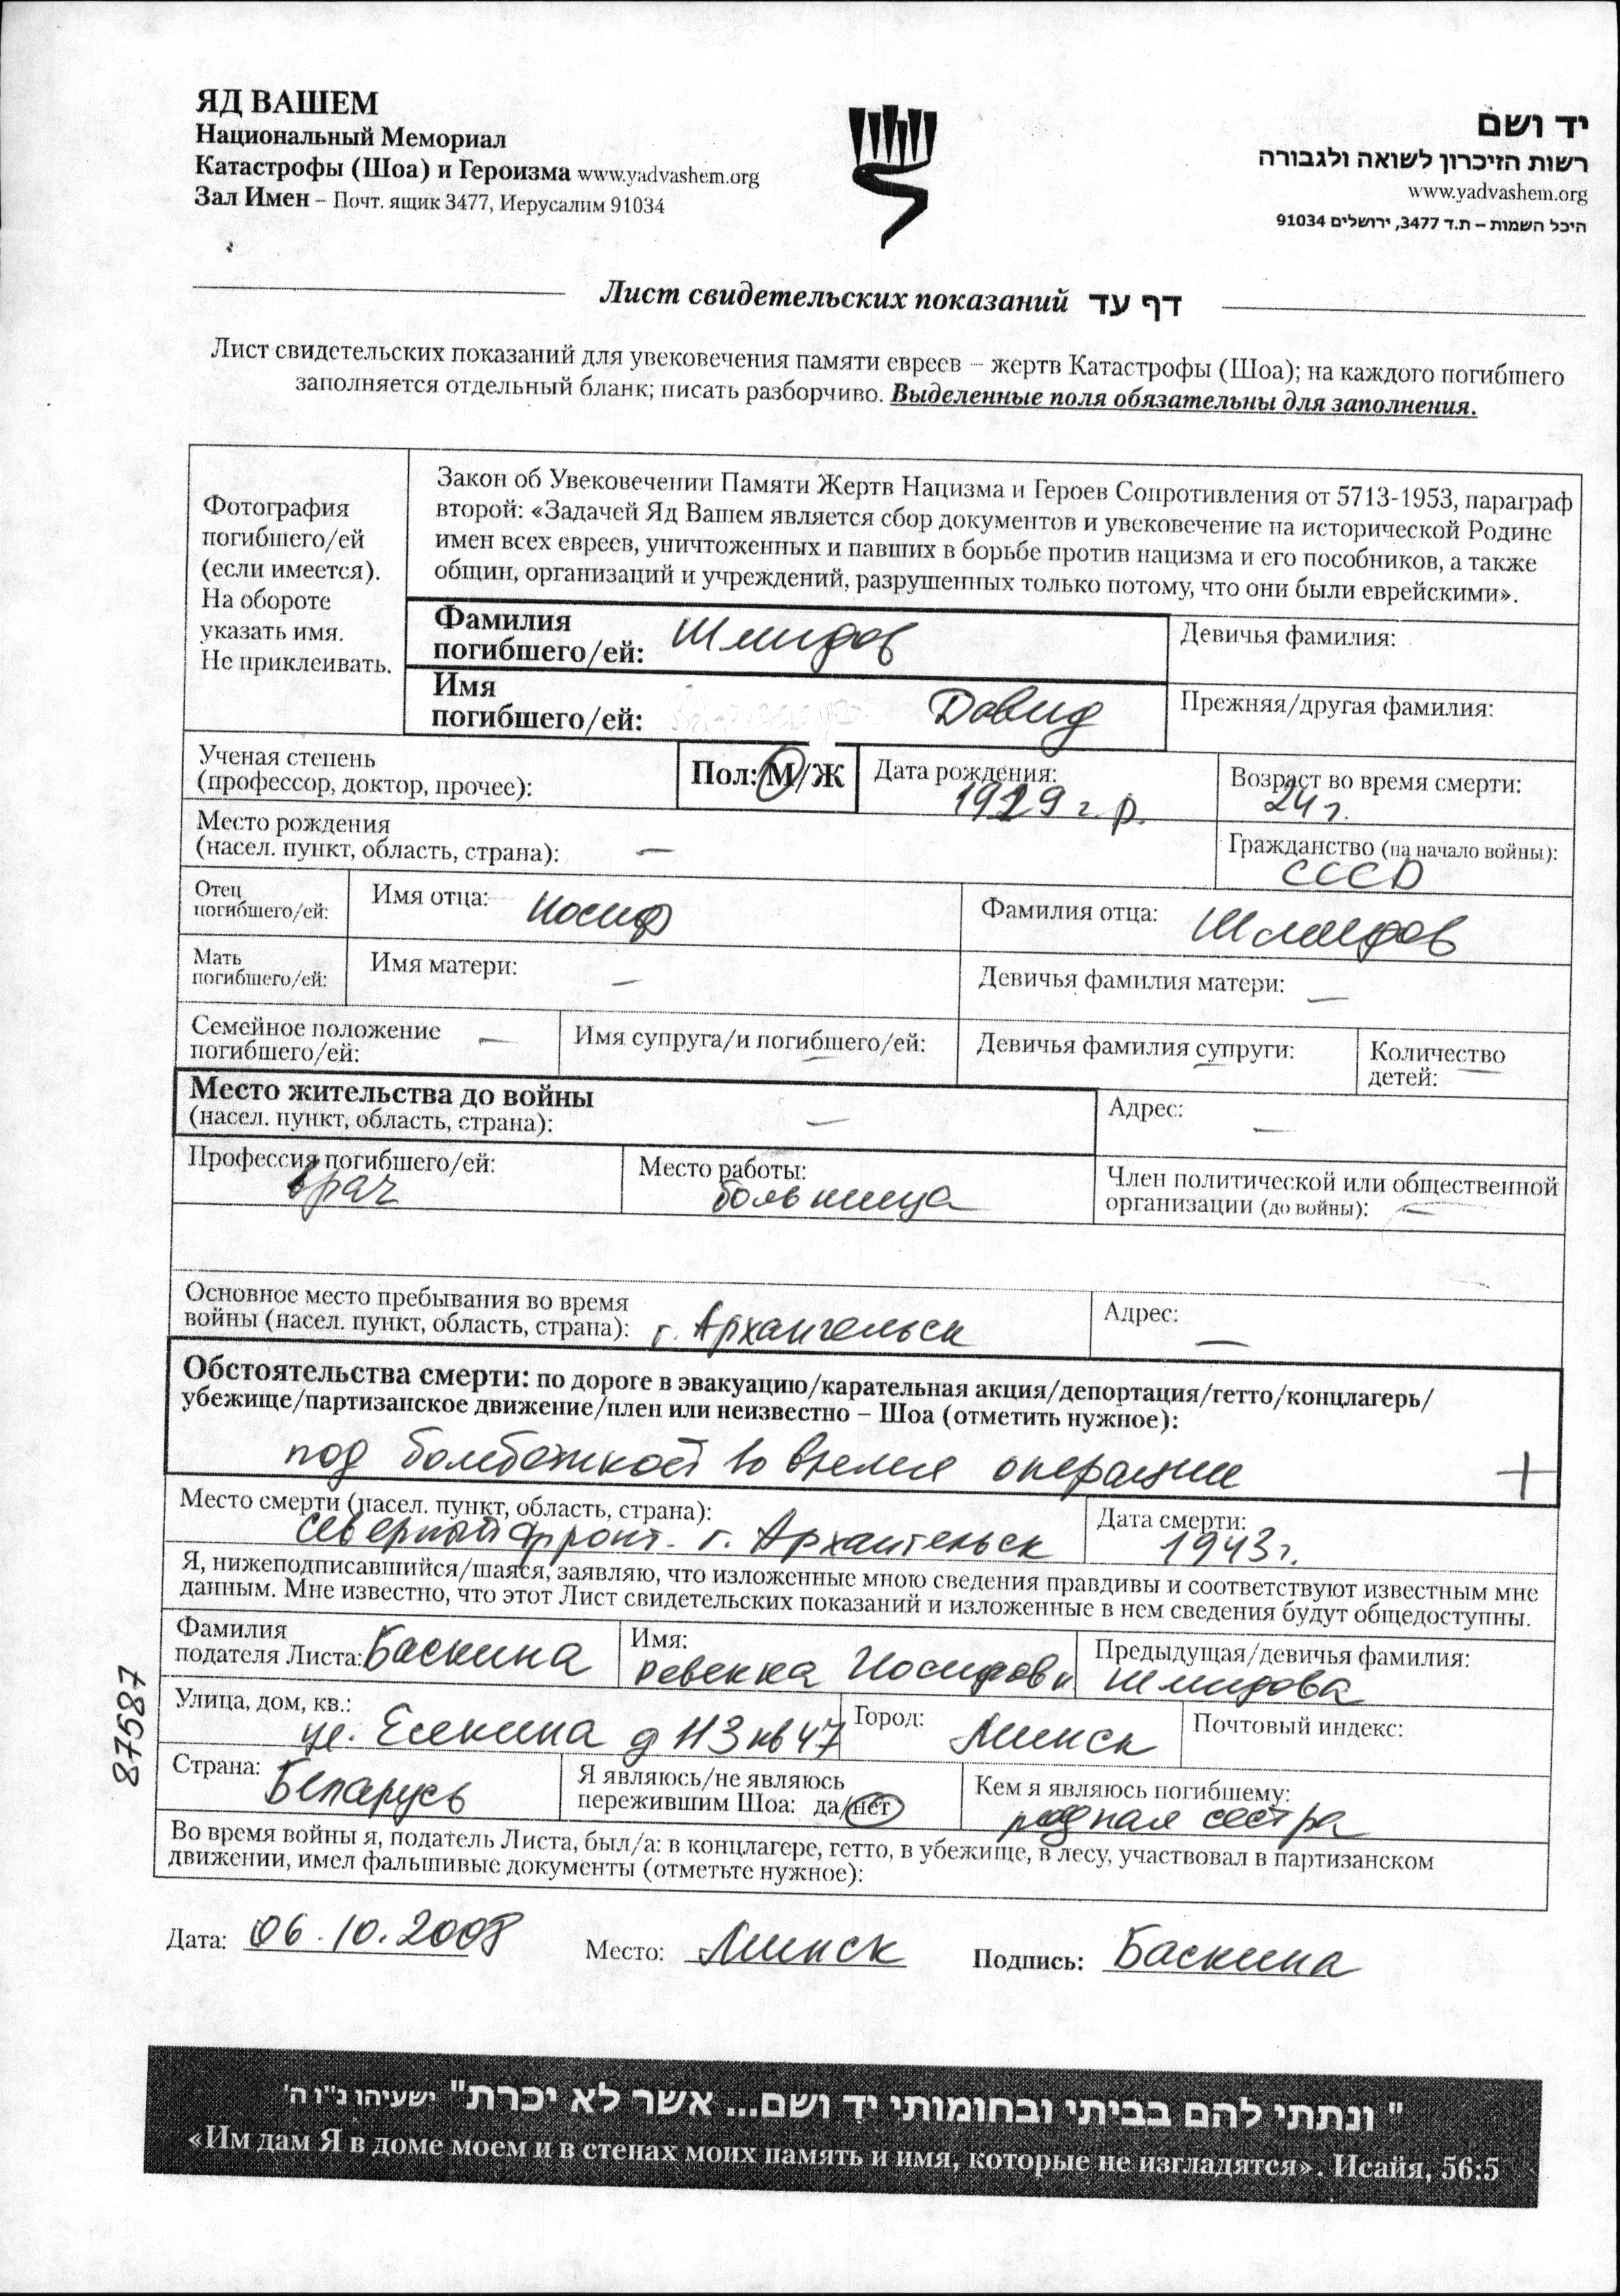 ЯД ВАШЕМ
Национальный Мемориал
Катастрофы (Шоа) и Героизма www.yadvashem.org
Зал Имен – Почт. ящик 3477, Иерусалим 91034
יד ושם
רשות הזיכרון לשואה ולגבורה
www.yadvashem.org
היכל השמות – ת.ד 3477, ירושלים 91034
Лист свидетельских показаний דף עד
Лист свидетельских показаний для увековечения памяти евреев – жертв Катастрофы (Шоа); на каждого погибшего
заполняется отдельный бланк; писать разборчиво. Выделенные поля обязательны для заполнения.
Фотография
погибшего/ей
(если имеется).
На обороте
указать имя.
Не приклеивать.
Закон об Увековечении Памяти Жертв Нацизма и Героев Сопротивления от 5713-1953, параграф
второй: «Задачей Яд Вашем является сбор документов и увековечение на исторической Родине
имен всех евреев, уничтоженных и павших в борьбе против нацизма и его пособников, а также
общин, организаций и учреждений, разрушенных только потому, что они были еврейскими».
Фамилия
погибшего/ей: Шмидов
Девичья фамилия:
Имя
погибшего/ей: Довид
Прежняя/другая фамилия:
Ученая степень
(профессор, доктор, прочее):
Пол: М/Ж
Дата рождения:
1929 г.р.
Возраст во время смерти:
24 г.
Место рождения
(насел. пункт, область, страна): –
Гражданство (на начало войны):
СССР
Отец
погибшего/ей:
Имя отца: Иосиф
Фамилия отца: Шмидов
Мать
погибшего/ей:
Имя матери: –
Девичья фамилия матери: –
Семейное положение
погибшего/ей: –
Имя супруга/и погибшего/ей: –
Девичья фамилия супруги: –
Количество
детей: –
Место жительства до войны
(насел. пункт, область, страна): –
Адрес: –
Профессия погибшего/ей:
врач
Место работы:
больница
Член политической или общественной
организации (до войны): –
Основное место пребывания во время
войны (насел. пункт, область, страна): г. Архангельск
Адрес: –
Обстоятельства смерти: по дороге в эвакуацию/карательная акция/депортация/гетто/концлагерь/
убежище/партизанское движение/плен или неизвестно – Шоа (отметить нужное):
под бомбежкой во время операции +
Место смерти (насел. пункт, область, страна):
северный фронт. г. Архангельск
Дата смерти:
1943 г.
Я, нижеподписавшийся/шаяся, заявляю, что изложенные мною сведения правдивы и соответствуют известным мне
данным. Мне известно, что этот Лист свидетельских показаний и изложенные в нем сведения будут общедоступны.
Фамилия
подателя Листа: Баскина
Имя:
Ревекка Иосифовн
Предыдущая/девичья фамилия:
Шмидова
Улица, дом, кв.:
ул. Есенина д 113 кв 47
Город: Минск
Почтовый индекс:
Страна: Беларусь
Я являюсь/не являюсь
пережившим Шоа: да/нет
Кем я являюсь погибшему:
родная сестра
Во время войны я, податель Листа, был/а: в концлагере, гетто, в убежище, в лесу, участвовал в партизанском
движении, имел фальшивые документы (отметьте нужное):
Дата: 06.10.2008 Место: Минск Подпись: Баскина
87587
" ונתתי להם בביתי ובחומותי יד ושם... אשר לא יכרת" ישעיהו נ"ו ה'
«Им дам Я в доме моем и в стенах моих память и имя, которые не изгладятся». Исайя, 56:5